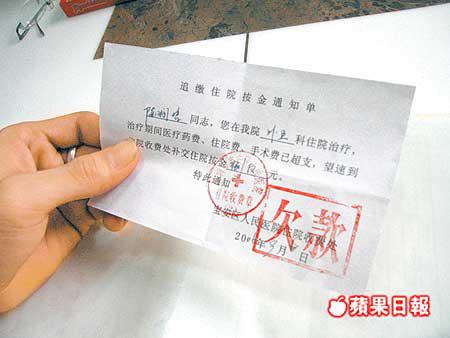 追缴住院按金通知单
同志，您在我院外科住院治疗，
治疗期间医疗药费、住院费、手术费已超支，望速到
院收费处补交住院按金 元。
特此通知
住院收费章
宝安区人民医院住院收费处
欠款
200 年 月 日
蘋果日報